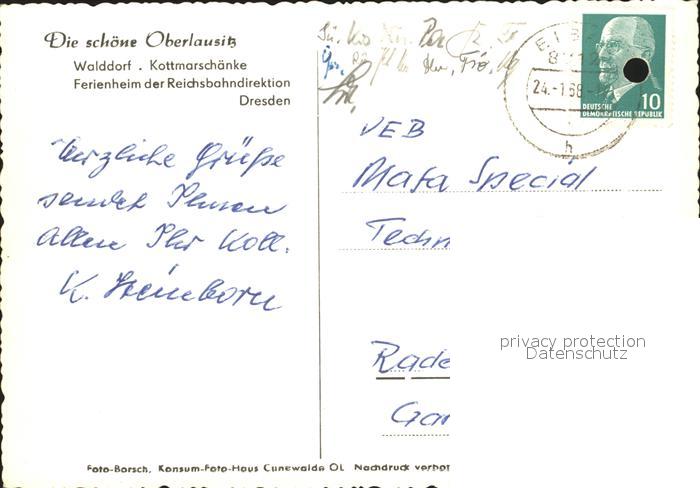 Die schöne Oberlausitz
Walddorf . Kottmarschänke
Ferienheim der Reichsbahndirektion
Dresden
Herzliche Grüße
sendet Ihnen
Allen Ihr Koll.
K. Steinborn
24.-1.68.-
h
DEUTSCHE
DEMOKRATISCHE REPUBLIK
10
VEB
Mafa Special
Techn
Rade
Gar
privacy protection
Datenschutz
Foto-Borsch, Konsum-Foto-Haus Cunewalde OL Nachdruck verbot